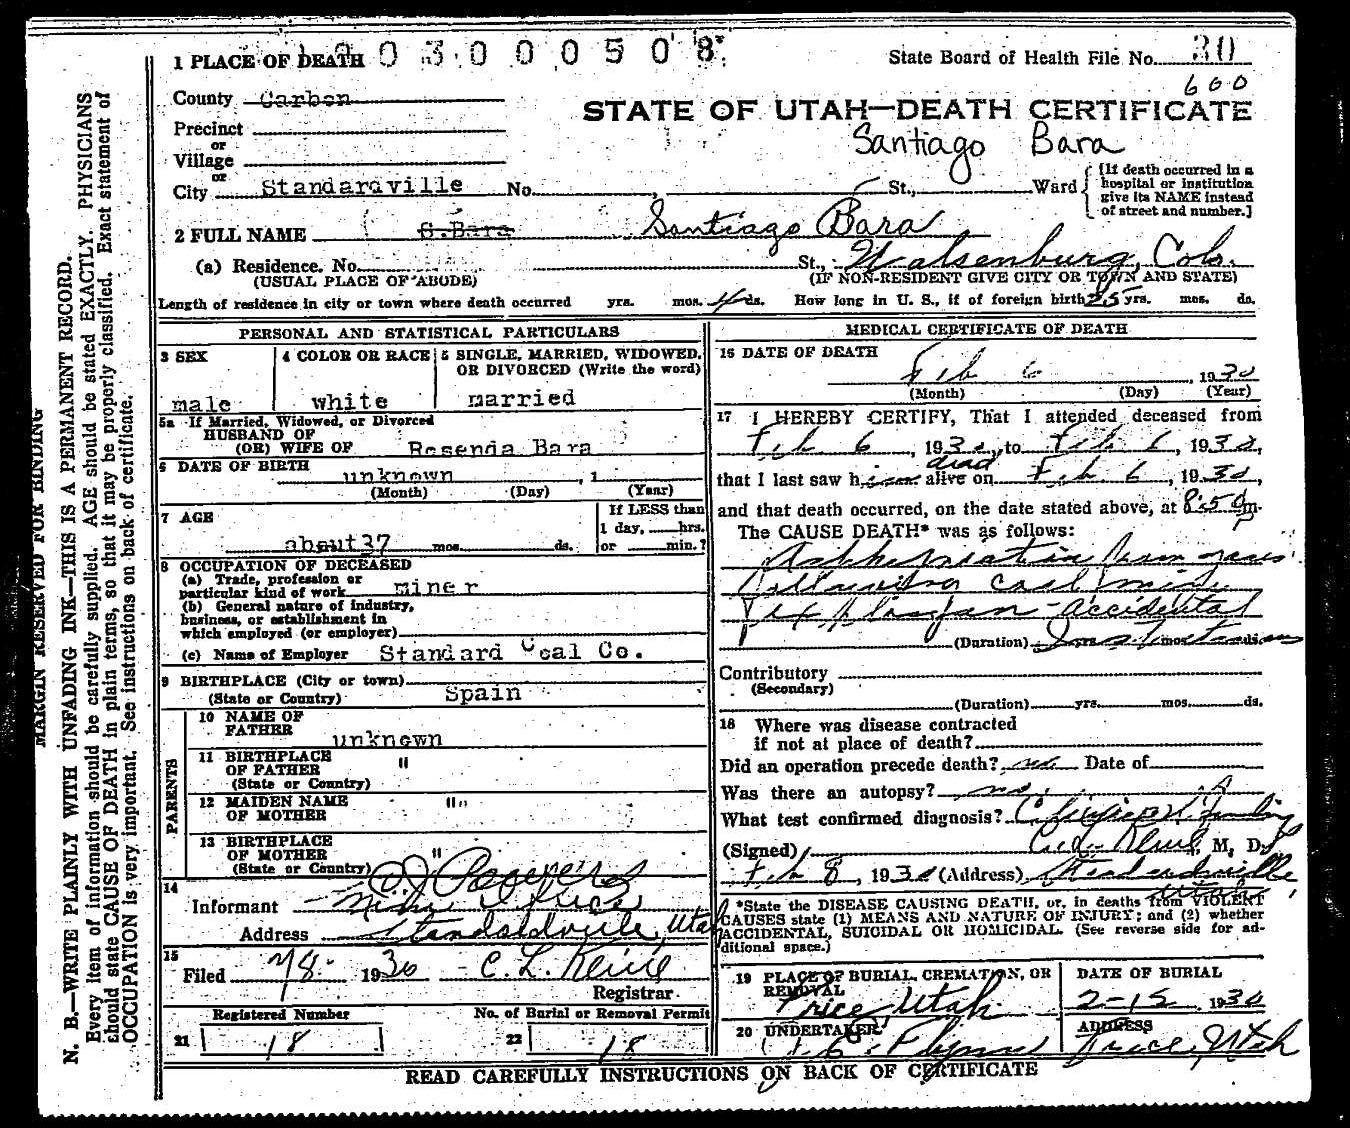 0 3 0 0 0 5 0 8
State Board of Health File No. 30
600
1 PLACE OF DEATH
County Carbon
STATE OF UTAH—DEATH CERTIFICATE
Precinct
or
Village
Santiago Bara
or
City Standardville No. St., Ward
[If death occurred in a hospital or institution give its NAME instead of street and number.]
2 FULL NAME S.Bara Santiago Bara
(a) Residence. No. St., Walsenburg, Colo.
(USUAL PLACE OF ABODE) (IF NON-RESIDENT GIVE CITY OR TOWN AND STATE)
Length of residence in city or town where death occurred yrs. mos. 4 ds. How long in U. S., if of foreign birth 25 yrs. mos. ds.
PERSONAL AND STATISTICAL PARTICULARS
3 SEX
male
4 COLOR OR RACE
white
5 SINGLE, MARRIED, WIDOWED, OR DIVORCED (Write the word)
married
5a If Married, Widowed, or Divorced
HUSBAND OF
(OR) WIFE OF Rosenda Bara
6 DATE OF BIRTH unknown , 1
(Month) (Day) (Year)
7 AGE
about 37 mos. ds.
If LESS than
1 day, hrs.
or min.?
8 OCCUPATION OF DECEASED
(a) Trade, profession or
particular kind of work miner
(b) General nature of industry,
business, or establishment in
which employed (or employer)
(c) Name of Employer Standard Coal Co.
9 BIRTHPLACE (City or town)
(State or Country) Spain
PARENTS
10 NAME OF
FATHER unknown
11 BIRTHPLACE
OF FATHER "
(State or Country)
12 MAIDEN NAME "
OF MOTHER
13 BIRTHPLACE
OF MOTHER "
(State or Country)
14
Informant Mine Office
Address Standardville, Utah
15
Filed 2/8 1930 C. L. Kline
Registrar
Registered Number
21 18
No. of Burial or Removal Permit
22 18
MEDICAL CERTIFICATE OF DEATH
16 DATE OF DEATH
Feb 6, 1930
(Month) (Day) (Year)
17 I HEREBY CERTIFY, That I attended deceased from
Feb 6, 1930, to Feb 6, 1930,
that I last saw him dead alive on Feb 6, 1930,
and that death occurred, on the date stated above, at 8:50 Pm.
The CAUSE DEATH* was as follows:
Asphyxiation from gases
following coal mine
explosion - accidental
(Duration) Instantaneous yrs. mos. ds.
Contributory
(Secondary)
(Duration) yrs. mos. ds.
18 Where was disease contracted
if not at place of death?
Did an operation precede death? no Date of
Was there an autopsy? no
What test confirmed diagnosis?
(Signed) C. L. Kline M, D.
Feb 8, 1930 (Address) Standardville, Utah
*State the DISEASE CAUSING DEATH, or, in deaths from VIOLENT
CAUSES state (1) MEANS AND NATURE OF INJURY; and (2) whether
ACCIDENTAL, SUICIDAL OR HOMICIDAL. (See reverse side for ad-
ditional space.)
19 PLACE OF BURIAL, CREMATION, OR
REMOVAL
Price, Utah
DATE OF BURIAL
2-15 1930
20 UNDERTAKER
Flynn
ADDRESS
Price, Utah
READ CAREFULLY INSTRUCTIONS ON BACK OF CERTIFICATE
MARGIN RESERVED FOR BINDING
N. B.—WRITE PLAINLY WITH UNFADING INK—THIS IS A PERMANENT RECORD.
Every item of information should be carefully supplied. AGE should be stated EXACTLY. PHYSICIANS
should state CAUSE OF DEATH in plain terms, so that it may be properly classified. Exact statement of
OCCUPATION is very important. See instructions on back of certificate.